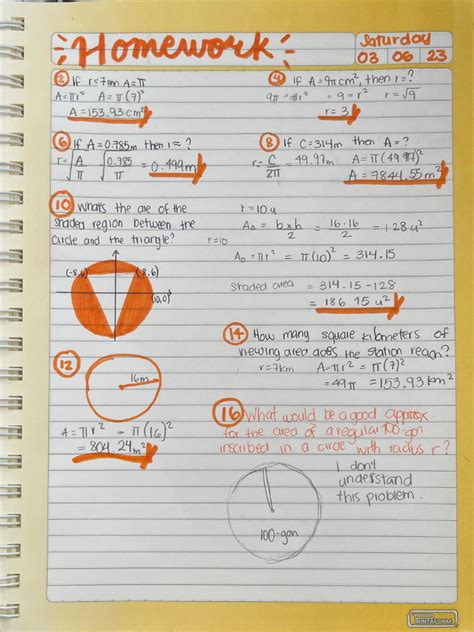 Homework
Saturday
03 06 23
② If r=7cm A=π
A=πr² A=π(7)²
A=153.93 cm²
④ If A=9πcm², then r=?
9π=πr² =9=r² r=√9
r=3
⑥ If A=0.785m then r=?
r=√A/π √0.785/π =0.499m
⑧ If C=314m then A=?
r=C/2π =49.97m A=π(49.97)²
A=7844.55m²
⑩ What's the are of the
shaded region between the
circle and the triangle?
r=10u
r=10
A△= bxh/2 = 16·16/2 =128u²
A○=πr² =π(10)² =314.15
shaded area =314.15-128
=186.15u²
(8,6)
⑫
16m
A=πr² =π(16)²
=804.24m²
⑭ How many square kilometers of
viewing area does the station reach?
r=7km A=πr²=π(7)²
=49π =153.93km²
⑯ What would be a good approx.
for the area of a regular 100-gon
inscribed in a circle with radius r?
I don't
understand
this problem.
100-gon